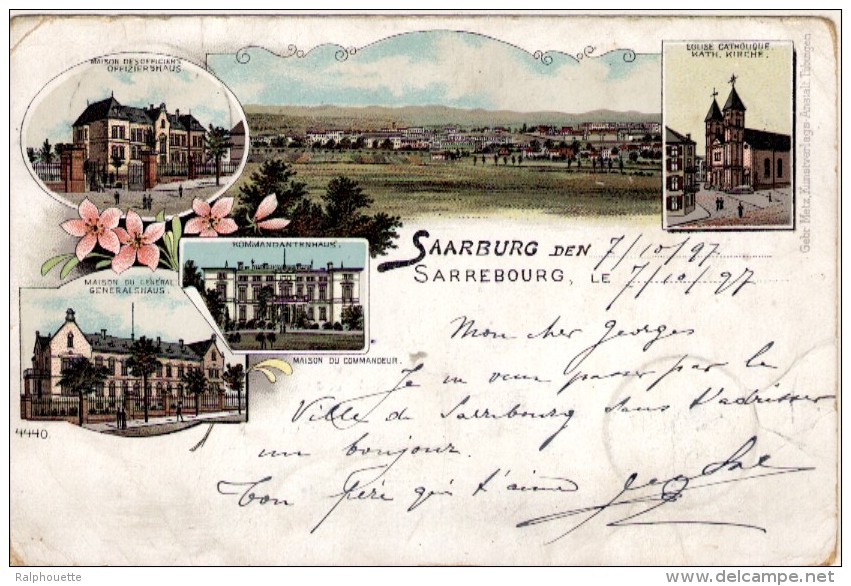 MAISON DES OFFICIERS
OFFIZIERSHAUS
EGLISE CATHOLIQUE.
KATH. KIRCHE.
Gebr Metz, Kunstverlags-Anstalt Tübingen
KOMMANDANTENHAUS.
SAARBURG DEN 7/10/97
SARREBOURG, LE 7/10/97
MAISON DU GENERAL
GENERALSHAUS.
MAISON DU COMMANDEUR.
4440.
Mon cher Georges
Je ne veux passer par la
Ville de Sarrebourg sans t'adresser
un bonjour.
Ton père qui t'aime
Ralphouette
www.delcampe.net